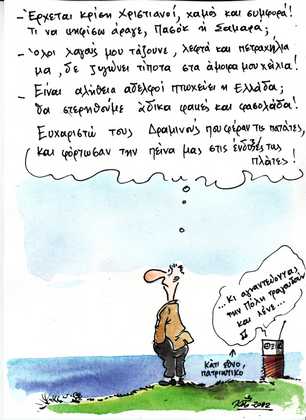 - Έρχεται κρίση Χριστιανοί, χαμός και συμφορά!
Τι να ψηφίσω άραγε, Πασόκ ή Σαμαρά;
- Όλοι λαγούς μου τάζουνε, λεφτά και πετραχήλια
μα, δε ζυγώνει τίποτα στα άμοιρα μου χείλια!
- Είναι αλήθεια αδελφοί πτωχεύει η Ελλάδα;
θα στερηθούμε άδικα φακές και φασολάδα!
- Ευχαριστώ τους Δραμινούς που φέραν τις πατάτες,
και φόρτωσαν την πείνα μας στις ένδοξές τας
πλάτες!
... κι αγναντεύοντας
την Πόλη τραγουδούν
και λένε...
κάτι ξένο,
πατριωτικό
2012